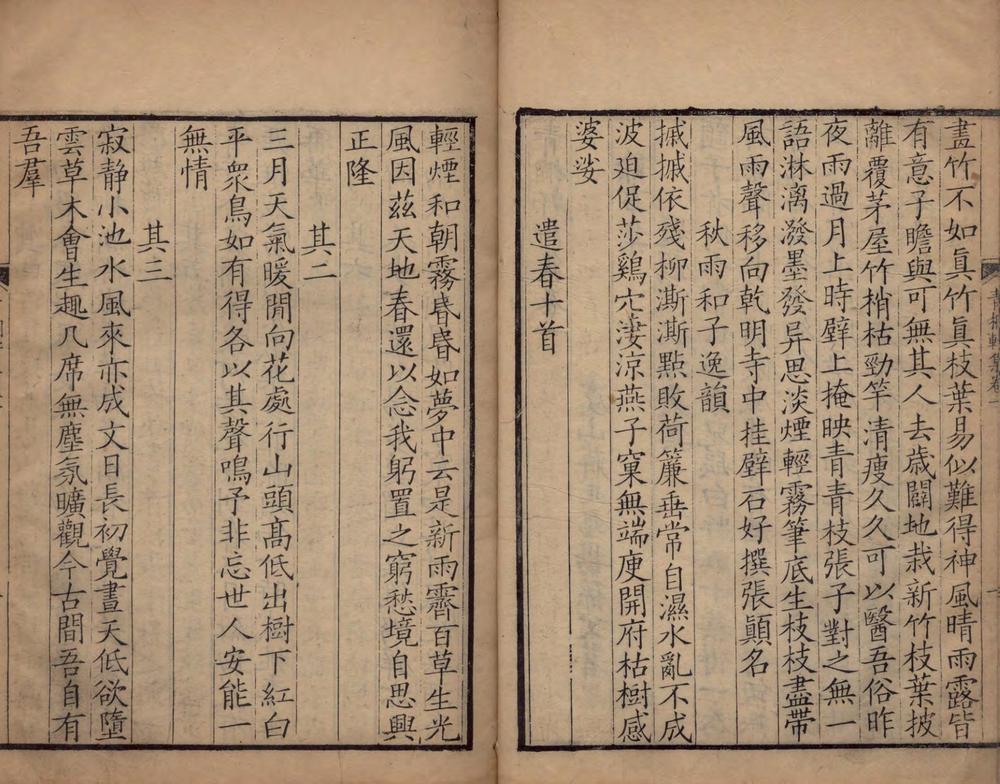 畫竹不如眞竹眞枝葉易似難得神風晴雨露皆
有意子瞻與可無其人去歲闢地栽新竹枝葉披
離覆茅屋竹梢枯勁竿清瘦久久可以醫吾俗昨
夜雨過月上時壁上掩映青青枝張子對之無一
語淋漓潑墨發异思淡煙輕霧筆底生枝枝盡帶
風雨聲移向乾明寺中挂壁石好撰張顛名
秋雨和子逸韻
摵摵依殘柳澌澌點敗荷簾垂常自濕水亂不成
波迫促莎鷄穴淒涼燕子窠無端庾開府枯樹感
婆娑
遣春十首
輕煙和朝霧昏昏如夢中云是新雨霽百草生光
風因茲天地春還以念我躬置之窮愁境自思興
正隆
其二
三月天氣暖閒向花處行山頭高低出樹下紅白
平衆鳥如有得各以其聲鳴予非忘世人安能一
無情
其三
寂靜小池水風來亦成文日長初覺晝天低欲墮
雲草木會生趣几席無塵氛曠觀今古間吾自有
吾羣